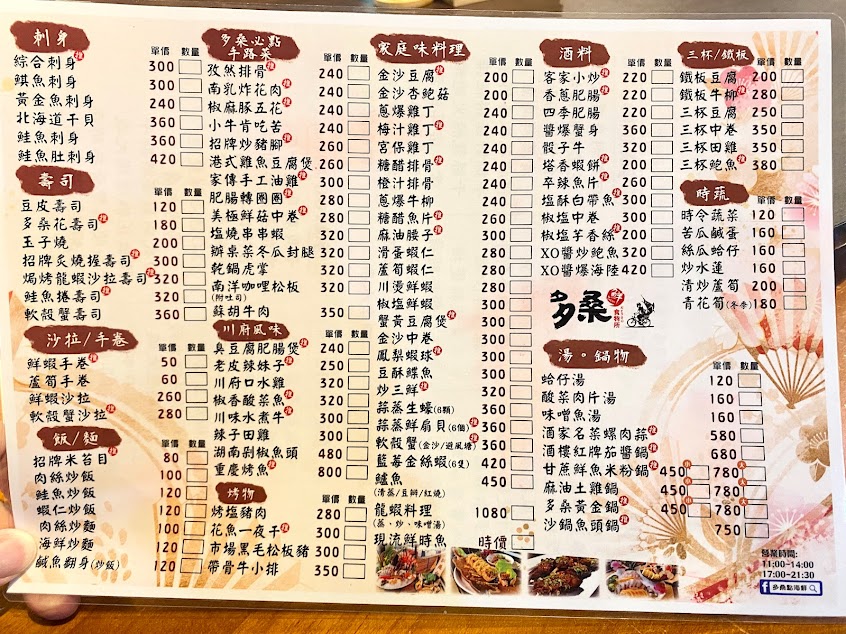 刺身 單價 數量
綜合刺身 推 300
鯕魚刺身 300
黃金魚刺身 300
北海道干貝 360
鮭魚刺身 360
鮭魚肚刺身 420
壽司 單價 數量
豆皮壽司 120
多桑花壽司 推 180
玉子燒 200
招牌炙燒握壽司 推 300
焗烤龍蝦沙拉壽司 推 320
鮭魚捲壽司 推 320
軟殼蟹壽司 360
沙拉/手卷 單價 數量
鮮蝦手卷 推 50
蘆筍手卷 60
鮮蝦沙拉 260
軟殼蟹沙拉 推 280
飯/麵 單價 數量
招牌米苔目 推 80
肉絲炒飯 100
鮭魚炒飯 120
蝦仁炒飯 120
肉絲炒麵 100
海鮮炒麵 120
鹹魚翻身(炒飯) 120
多桑必點手路菜 單價 數量
孜然排骨 推 240
南乳炸花肉 推 240
椒麻豚五花 240
小牛肯吃苦 240
招牌炒豬腳 推 240
港式雞魚豆腐煲 260
家傳手工油雞 推 300
肥腸轉圈圈 推 280
美極鮮菇中卷 推 300
塩燒串串蝦 300
辦桌菜冬瓜封腿 320
乾鍋虎掌 320
南洋咖哩松板 320
(附吐司)
蘇胡牛肉 350
川府風味 單價 數量
臭豆腐肥腸煲 推 240
老皮辣妹子 推 250
川府口水雞 320
椒香酸菜魚 推 320
川味水煮牛 推 300
辣子田雞 300
湖南剁椒魚頭 480
重慶烤魚 推 800
烤物 單價 數量
烤塩豬肉 280
花魚一夜干 推 300
市場黑毛松板豬 300
帶骨牛小排 350
家庭味料理 單價 數量
金沙豆腐 推 200
金沙杏鮑菇 200
蔥爆雞丁 220
梅汁雞丁 推 220
宮保雞丁 220
糖醋排骨 推 240
橙汁排骨 240
蔥爆牛柳 280
糖醋魚片 推 280
麻油腰子 推 300
滑蛋蝦仁 280
蘆筍蝦仁 280
川燙鮮蝦 280
椒塩鮮蝦 280
蟹黃豆腐煲 推 300
金沙中卷 300
鳳梨蝦球 推 300
豆酥鰈魚 320
炒三鮮 推 320
蒜蒸生蠔(6顆) 360
蒜蒸鮮扇貝(6個) 推 360
軟殼蟹(金沙/避風塘) 推 360
藍莓金絲蝦(6隻) 420
鱸魚 450
(清蒸/豆瓣/紅燒)
龍蝦料理 1080
(蒸、炒、味噌湯)
現流鮮時魚 時價
酒料 單價 數量
客家小炒 推 220
香蔥肥腸 推 220
四季肥腸 220
醬爆蟹身 360
骰子牛 320
塔香蝦餅 推 240
卒辣魚片 推 260
塩酥白帶魚 推 300
椒塩中卷 300
椒塩芋香絲 推 200
XO醬炒鮑魚 320
XO醬爆海陸 420
多桑 食物所
湯。鍋物 單價 數量
蛤仔湯 120
酸菜肉片湯 160
味噌魚湯 160
酒家名菜螺肉蒜 推 580
酒樓紅牌茄醬鍋 推 680
甘蔗鮮魚米粉鍋 推 450 小 780 大
麻油土雞鍋 450 小 780 大
多桑黃金鍋 推 450 小 780 大
沙鍋魚頭鍋 推 750
三杯/鐵板 單價 數量
鐵板豆腐 200
鐵板牛柳 推 280
三杯豆腐 250
三杯中卷 350
三杯田雞 350
三杯鮑魚 推 380
時蔬 單價 數量
時令蔬菜 120
苦瓜鹹蛋 160
絲瓜蛤仔 160
炒水蓮 160
清炒蘆筍 200
青花筍(冬季) 180
營業時間:
11:00-14:00
17:00-21:30
f 多桑點海鮮